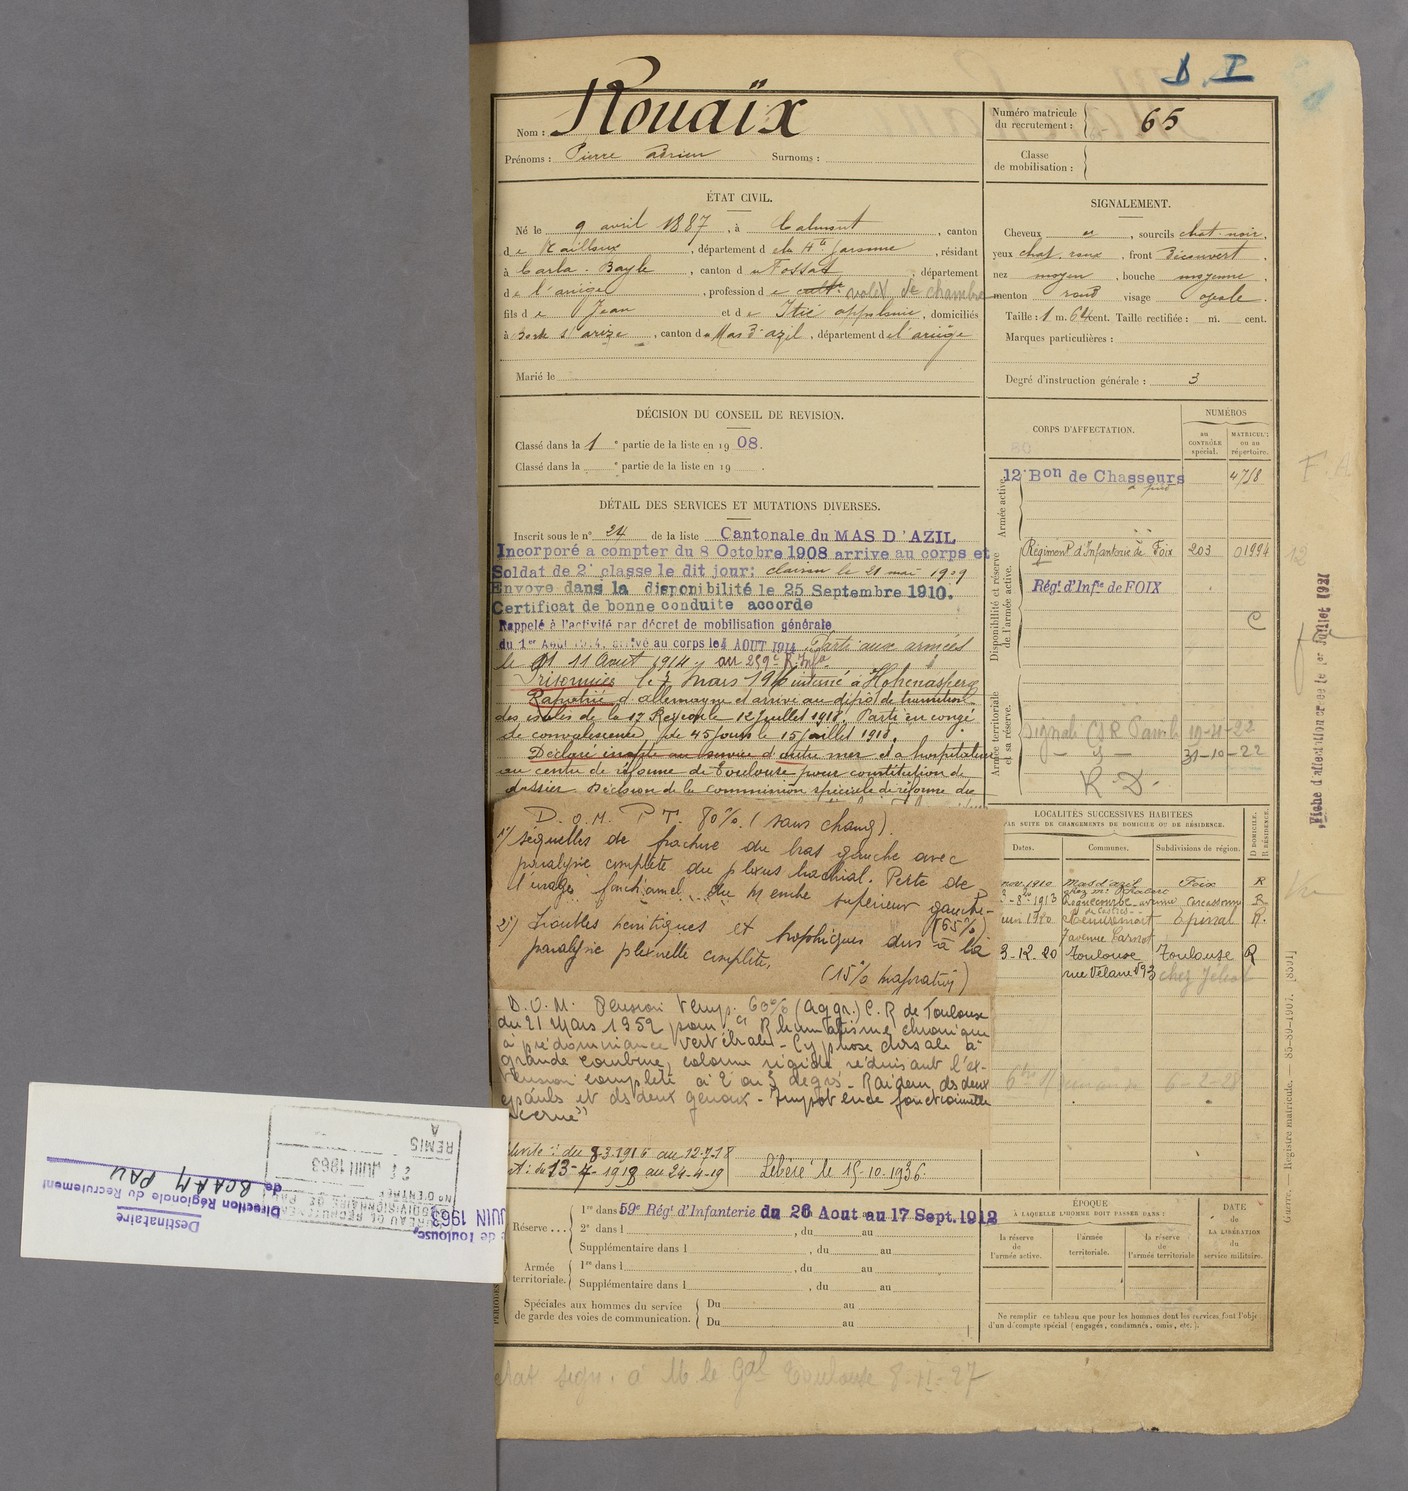 D. I
Nom : Rouaïx
Prénoms : Pierre Adrien Surnoms :
Numéro matricule du recrutement : 65
Classe de mobilisation :
ÉTAT CIVIL.
Né le 9 avril 1887, à Calmont, canton
de Nailloux, département de la Hte Garonne, résidant
à Carla-Bayle, canton du Fossat, département
de l'ariège, profession de cultr valet de chambre
fils de Jean et de Itié appolonie, domiciliés
à , canton du Mas d'azil, département de l'ariège
Marié le
SIGNALEMENT.
Cheveux et, sourcils chat. noir,
yeux chat. roux, front Découvert,
nez moyen, bouche moyenne,
menton rond visage ovale.
Taille : 1 m. 64 cent. Taille rectifiée : m. cent.
Marques particulières :
Degré d'instruction générale : 3
DÉCISION DU CONSEIL DE REVISION.
Classé dans la 1e partie de la liste en 1908.
Classé dans la e partie de la liste en 19 .
DÉTAIL DES SERVICES ET MUTATIONS DIVERSES.
Inscrit sous le n° 24 de la liste Cantonale du MAS D'AZIL
Incorporé a compter du 8 Octobre 1908 arrive au corps et
Soldat de 2e classe le dit jour; clairon le 21 mai 1909
Envoyé dans la disponibilité le 25 Septembre 1910.
Certificat de bonne conduite accorde
Rappelé à l'activité par décret de mobilisation générale
du 1er Août 1914, arrivé au corps le 4 AOUT 1914 Parti aux armées
le 11 Aout 1914, au 259e R. Infie
Prisonnier le 8 mars 1916 interné à Hohenasperg
Rapatrié d'allemagne et arrivé au dépôt de transition
des isolés de la 17 Région le 12 juillet 1918. Parti en congé
de convalescence de 45 jours le 15 juillet 1918.
Déclaré inapte au service d'outre mer et a hospitaliser
au centre de réforme de Toulouse pour constitution de
dossier. Décision de la commission spéciale de réforme du
D.O.M. P.T. 80% (sans chang).
1°/ séquelles de fracture du bras gauche avec
paralysie complète du plexus brachial. Perte de
l'usage fonctionnel du Membre supérieur gauche
(65%)
2°) Troubles névritiques et trophiques dus à la
paralysie plexuelle complète.
(15% majoration)
D.O.M. Pension temp. 60% (aggr.) C.R de Toulouse
du 21 Mars 1952 pour "Rhumatisme chronique
à prédominance vertébrale - Cyphose dorsale à
grande courbure, colonne rigide réduisant l'ex-
tension complète à 2 ou 3 degrés - Raideur ds deux
épaules et ds deux genoux - Impotence fonctionnelle
du 8-3-1916 au 12-7-18
du 13-7-1918 au 24-4-19 Libéré le 15-10-1936
CORPS D'AFFECTATION.
NUMÉROS
au CONTRÔLE spécial.
MATRICULE ou au répertoire.
Armée active.
12e Bon de Chasseurs à pied 4758
Disponibilité et réserve de l'armée active.
Régiment d'Infanterie de Foix 203 01994
Rég. d'Infie de FOIX
C
Armée territoriale et sa réserve.
Signalé CSR Pamiers 19-11-22
31-10-22
R.D.
LOCALITÉS SUCCESSIVES HABITÉES
PAR SUITE DE CHANGEMENTS DE DOMICILE OU DE RÉSIDENCE.
Dates. Communes. Subdivisions de région. D DOMICILE. R RÉSIDENCE.
nov. 1910 Mas d'azil Foix R
1913 Roquecourbe Carcassonne R
1920 Remiremont Epinal R.
7 avenue Carnot
3-12-20 Toulouse Toulouse R
rue Vélane 93 chez
6-2-28
PÉRIODES
Réserve... 1re dans l 59e Rég. d'Infanterie du 26 Aout au 17 Sept. 1912
2e dans l , du au
Supplémentaire dans l , du au
Armée territoriale. 1re dans l , du au
Supplémentaire dans l , du au
Spéciales aux hommes du service de garde des voies de communication. Du au
Du au
ÉPOQUE
À LAQUELLE L'HOMME DOIT PASSER DANS :
la réserve de l'armée active.
l'armée territoriale.
la réserve de l'armée territoriale
DATE de LA LIBÉRATION du service militaire.
Ne remplir ce tableau que pour les hommes dont les services font l'objet
d'un décompte spécial (engagés, condamnés, omis, etc.).
sign. à M. le Gal Toulouse 8-11-27
Fiche d'affectation créée le 1er Juillet 1921
F.A
12
Guerre. — Registre matricule. — 85-89-1907. [8501]
Destinataire
Direction Régionale du Recrutement
de BCAAM PAU
de Toulouse,
JUIN 1963
BUREAU DE RECRUTEMENT
SUBDIVISIONNAIRE DE PAU
N° D'ENTRÉE
JUIN 1963
REMIS
A